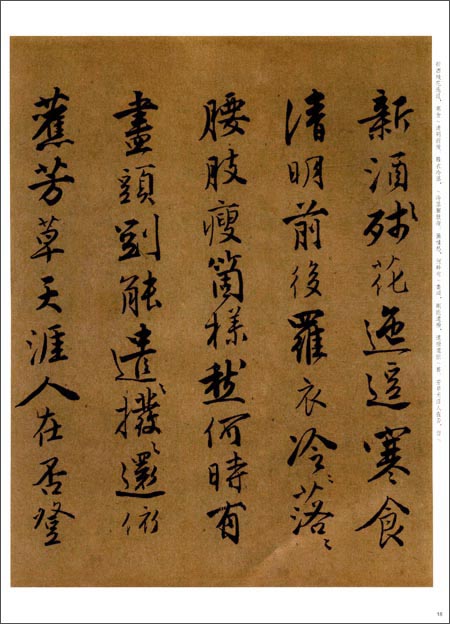 新酒殘花迤逗寒食
清明前後羅衣冷〻落〻
腰肢瘦箇樣愁何時有
盡頭別能遣〻撥〻還依
舊芳草天涯人在否登